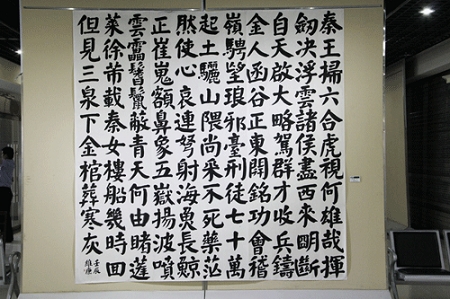 秦王掃六合虎視何雄哉揮
劒决浮雲諸侯盡西來明斷
自天啟大略駕群才收兵鑄
金人函谷正東開銘功會稽
嶺騁望琅邪臺刑徒七十萬
起土驪山隈尚采不死藥茫
然使心哀連弩射海魚長鯨
正崔嵬額鼻象五嶽揚波噴
雲靁鬐鬣蔽青天何由睹蓬
萊徐芾載秦女樓船幾時回
但見三泉下金棺葬寒灰
壬辰